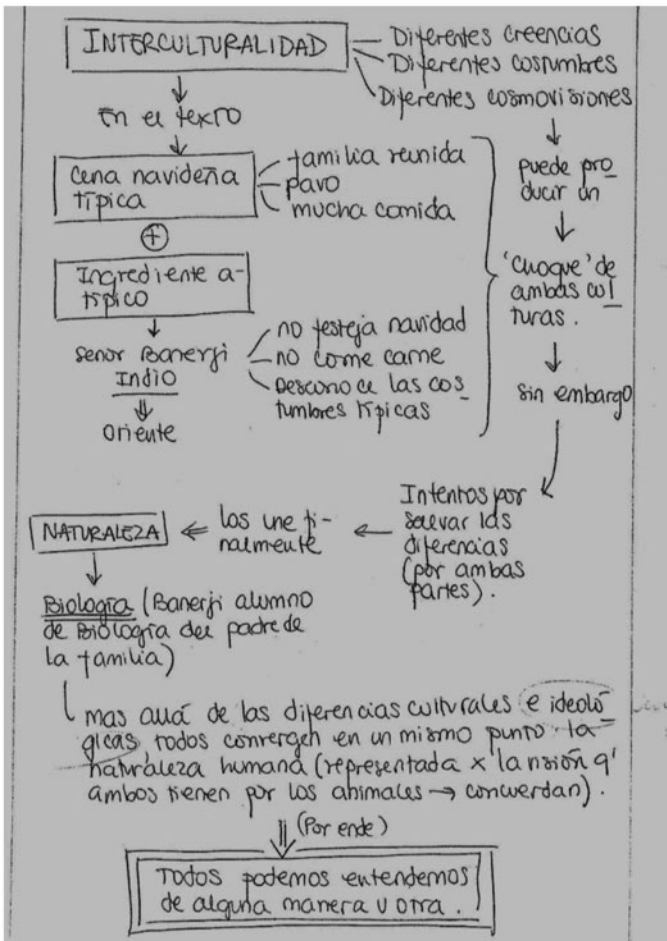 INTERCULTURALIDAD
Diferentes creencias
Diferentes costumbres
Diferentes cosmovisiones
En el texto
Cena navideña
típica
familia reunida
pavo
mucha comida
+
Ingrediente a-
típico
señor Banerji
Indio
Oriente
no festeja navidad
no come carne
Desconoce las cos_
tumbres típicas
puede pro_
ducir un
'Choque' de
ambas cul_
turas.
sin embargo
Intentos por
salvar las
diferencias
(por ambas
partes).
los une fi-
nalmente
NATURALEZA
Biología (Banerji alumno
de Biología del padre de
la familia)
mas allá de las diferencias culturales e ideoló_
gicas todos convergen en un mismo punto: la
naturaleza humana (representada x la visión q'
ambos tienen por los animales → concuerdan).
(Por ende)
Todos podemos entendernos
de alguna manera u otra.